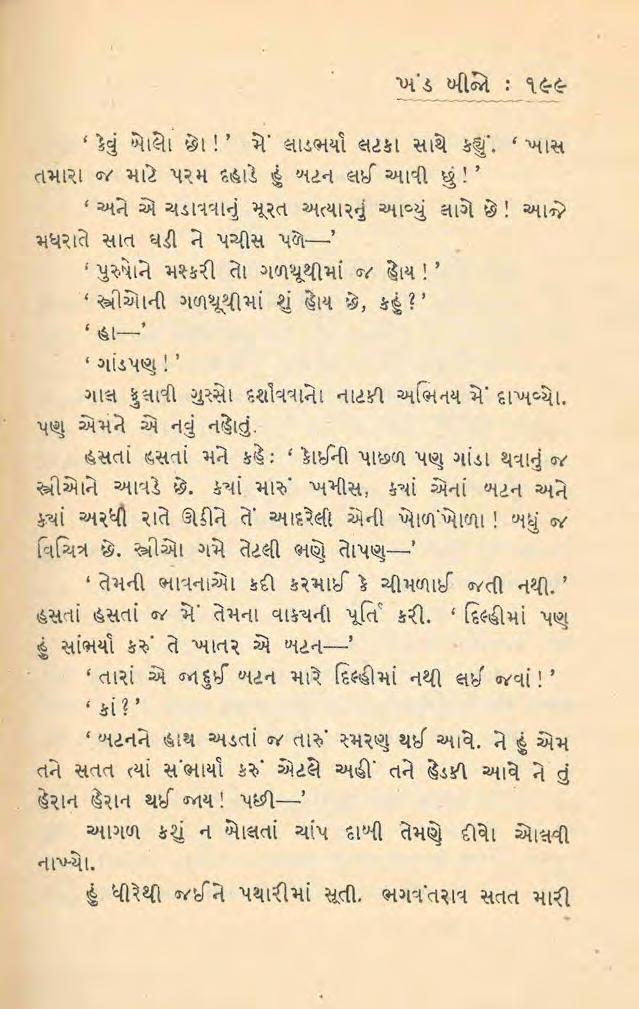 ખંડ બીજો : ૧૯૯
‘ કેવું બોલો છો ! ’ મેં લાડભર્યા લટકા સાથે કહ્યું. ‘ ખાસ
તમારા જ માટે પરમ દહાડે હું બટન લઈ આવી છું ! ’
‘ અને એ ચડાવવાનું મૂરત અત્યારનું આવ્યું લાગે છે ! આજે
મધરાતે સાત ઘડી ને પચીસ પળે—’
‘ પુરુષોને મશ્કરી તો ગળથૂથીમાં જ હોય ! ’
‘ સ્ત્રીઓની ગળથૂથીમાં શું હોય છે, કહું ? ’
‘ હા—’
‘ ગાંડપણ ! ’
ગાલ ફુલાવી ગુસ્સો દર્શાવવાનો નાટકી અભિનય મેં દાખવ્યો.
પણ એમને એ નવું નહોતું.
હસતાં હસતાં મને કહે : ‘ કોઈની પાછળ પણ ગાંડા થવાનું જ
સ્ત્રીઓને આવડે છે. ક્યાં મારું ખમીસ, ક્યાં એનાં બટન અને
ક્યાં અરધી રાતે ઊઠીને તેં આદરેલી એની ખોળંખોળા ! બધું જ
વિચિત્ર છે. સ્ત્રીઓ ગમે તેટલી ભણે તોપણ—’
‘ તેમની ભાવનાઓ કદી કરમાઈ કે ચીમળાઈ જતી નથી. ’
હસતાં હસતાં જ મેં તેમના વાક્યની પૂર્તિ કરી. ‘ દિલ્હીમાં પણ
હું સાંભર્યા કરું તે ખાતર એ બટન—’
‘ તારાં એ જાદુઈ બટન મારે દિલ્હીમાં નથી લઈ જવાં ! ’
‘ કાં ? ’
‘ બટનને હાથ અડતાં જ તારું સ્મરણ થઈ આવે. ને હું એમ
તને સતત ત્યાં સંભાર્યા કરું એટલે અહીં તને હેડકી આવે ને તું
હેરાન હેરાન થઈ જાય ! પછી—’
આગળ કશું ન બોલતાં ચાંપ દાબી તેમણે દીવો ઓલવી
નાખ્યો.
હું ધીરેથી જઈને પથારીમાં સૂતી. ભગવંતરાવ સતત મારી